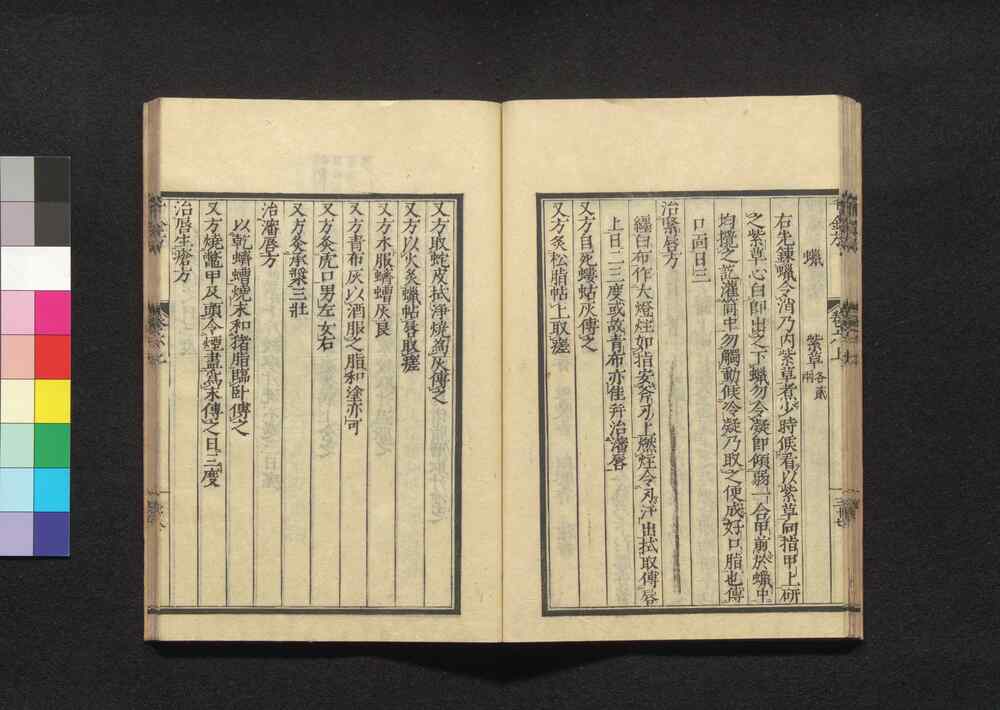 蠟　紫草各貳兩
右先鍊蠟令消乃內紫草煮少時候看以紫草向指甲上研
之紫草心白即出之下蠟勿令凝即傾弱一合甲煎於蠟中
均攪之訖灌筒中勿觸動候冷凝乃取之便成好口脂也傅
口面日三
治緊唇方
纏白布作大燈炷如指安斧刃上燃炷令刃汗出拭取傅唇
上日二三度或故青布亦佳并治瀋唇
又方自死螻蛄灰傅之
又方炙松脂帖上取瘥
又方取蛇皮拭淨燒為灰傅之
又方以火炙蠟帖唇取瘥
又方水服蠐螬灰良
又方青布灰以酒服之脂和塗亦可
又方灸虎口男左女右
又方灸承漿三壯
治瀋唇方
以乾蠐螬燒末和豬脂臨卧傅之
又方燒鱉甲及頭令煙盡為末傅之日三度
治唇生瘡方